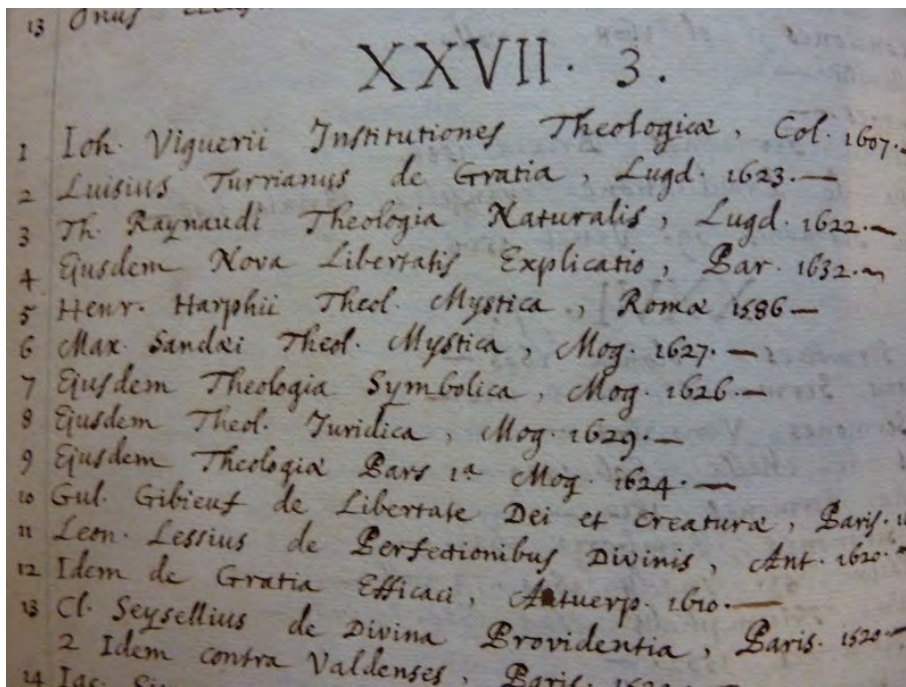 13 Onus
XXVII. 3.
1 Ioh. Viguerii Institutiones Theologicæ, Col. 1607.
2 Luisius Turrianus de Gratia, Lugd. 1623.—
3 Th. Raynaudi Theologia Naturalis, Lugd. 1622.—
4 Ejusdem Nova Libertatis Explicatio, Par. 1632.—
5 Henr. Harphii Theol. Mystica, Romæ 1586—
6 Max. Sandæi Theol. Mystica, Mog. 1627.—
7 Ejusdem Theologia Symbolica, Mog. 1626.—
8 Ejusdem Theol. Juridica, Mog. 1629.—
9 Ejusdem Theologiæ Pars 1a Mog. 1624.—
10 Gul. Gibieuf de Libertate Dei et Creaturæ, Paris.
11 Leon. Lessius de Perfectionibus Divinis, Ant. 1620.
12 Idem de Gratia Efficaci, Antuerp. 1610.—
13 Cl. Seysellius de Divina Providentia, Paris. 1520—
2 Idem contra Valdenses, Paris.
14 Iac.